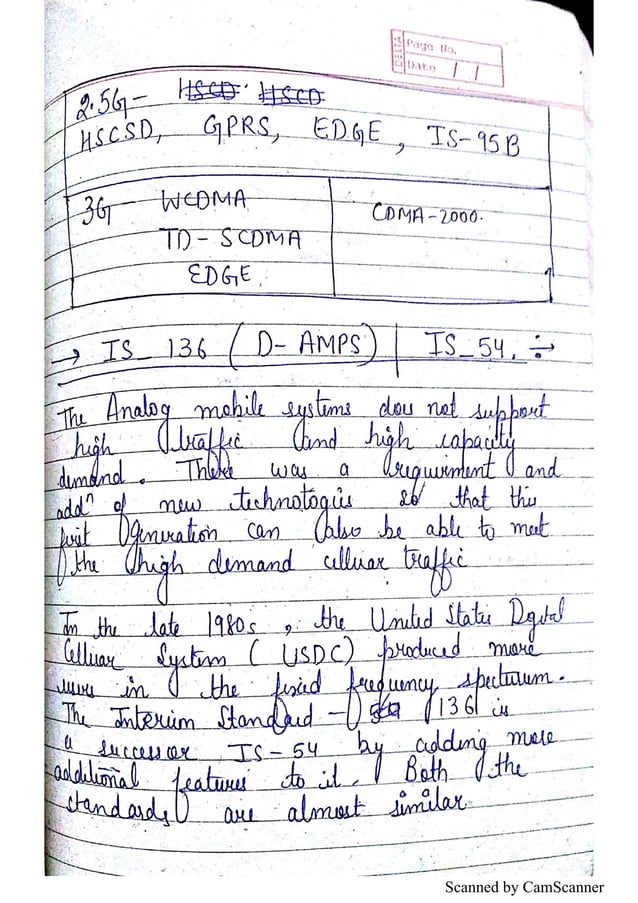 DELTA
Page No.
Date / /
2.5G - HSCD. HSCD
HSCSD, GPRS, EDGE, IS-95B
3G - WCDMA
CDMA-2000.
TD - SCDMA
EDGE.
→ IS_136 (D-AMPS) | IS_54. ÷→
The Analog mobile systems does not support
high traffic and high capacity
demand. There was a requirement and
addⁿ of new technologies so that this
first Generation can also be able to meet
the high demand celluar traffic
In the late 1980s, the United States Dgital
Celluar System (USDC) produced more
users in the fixed frequency specturum.
The Interium Standard - 136 is
a successor IS-54 by adding more
additional features to it. Both the
standards are almost similar
Scanned by CamScanner